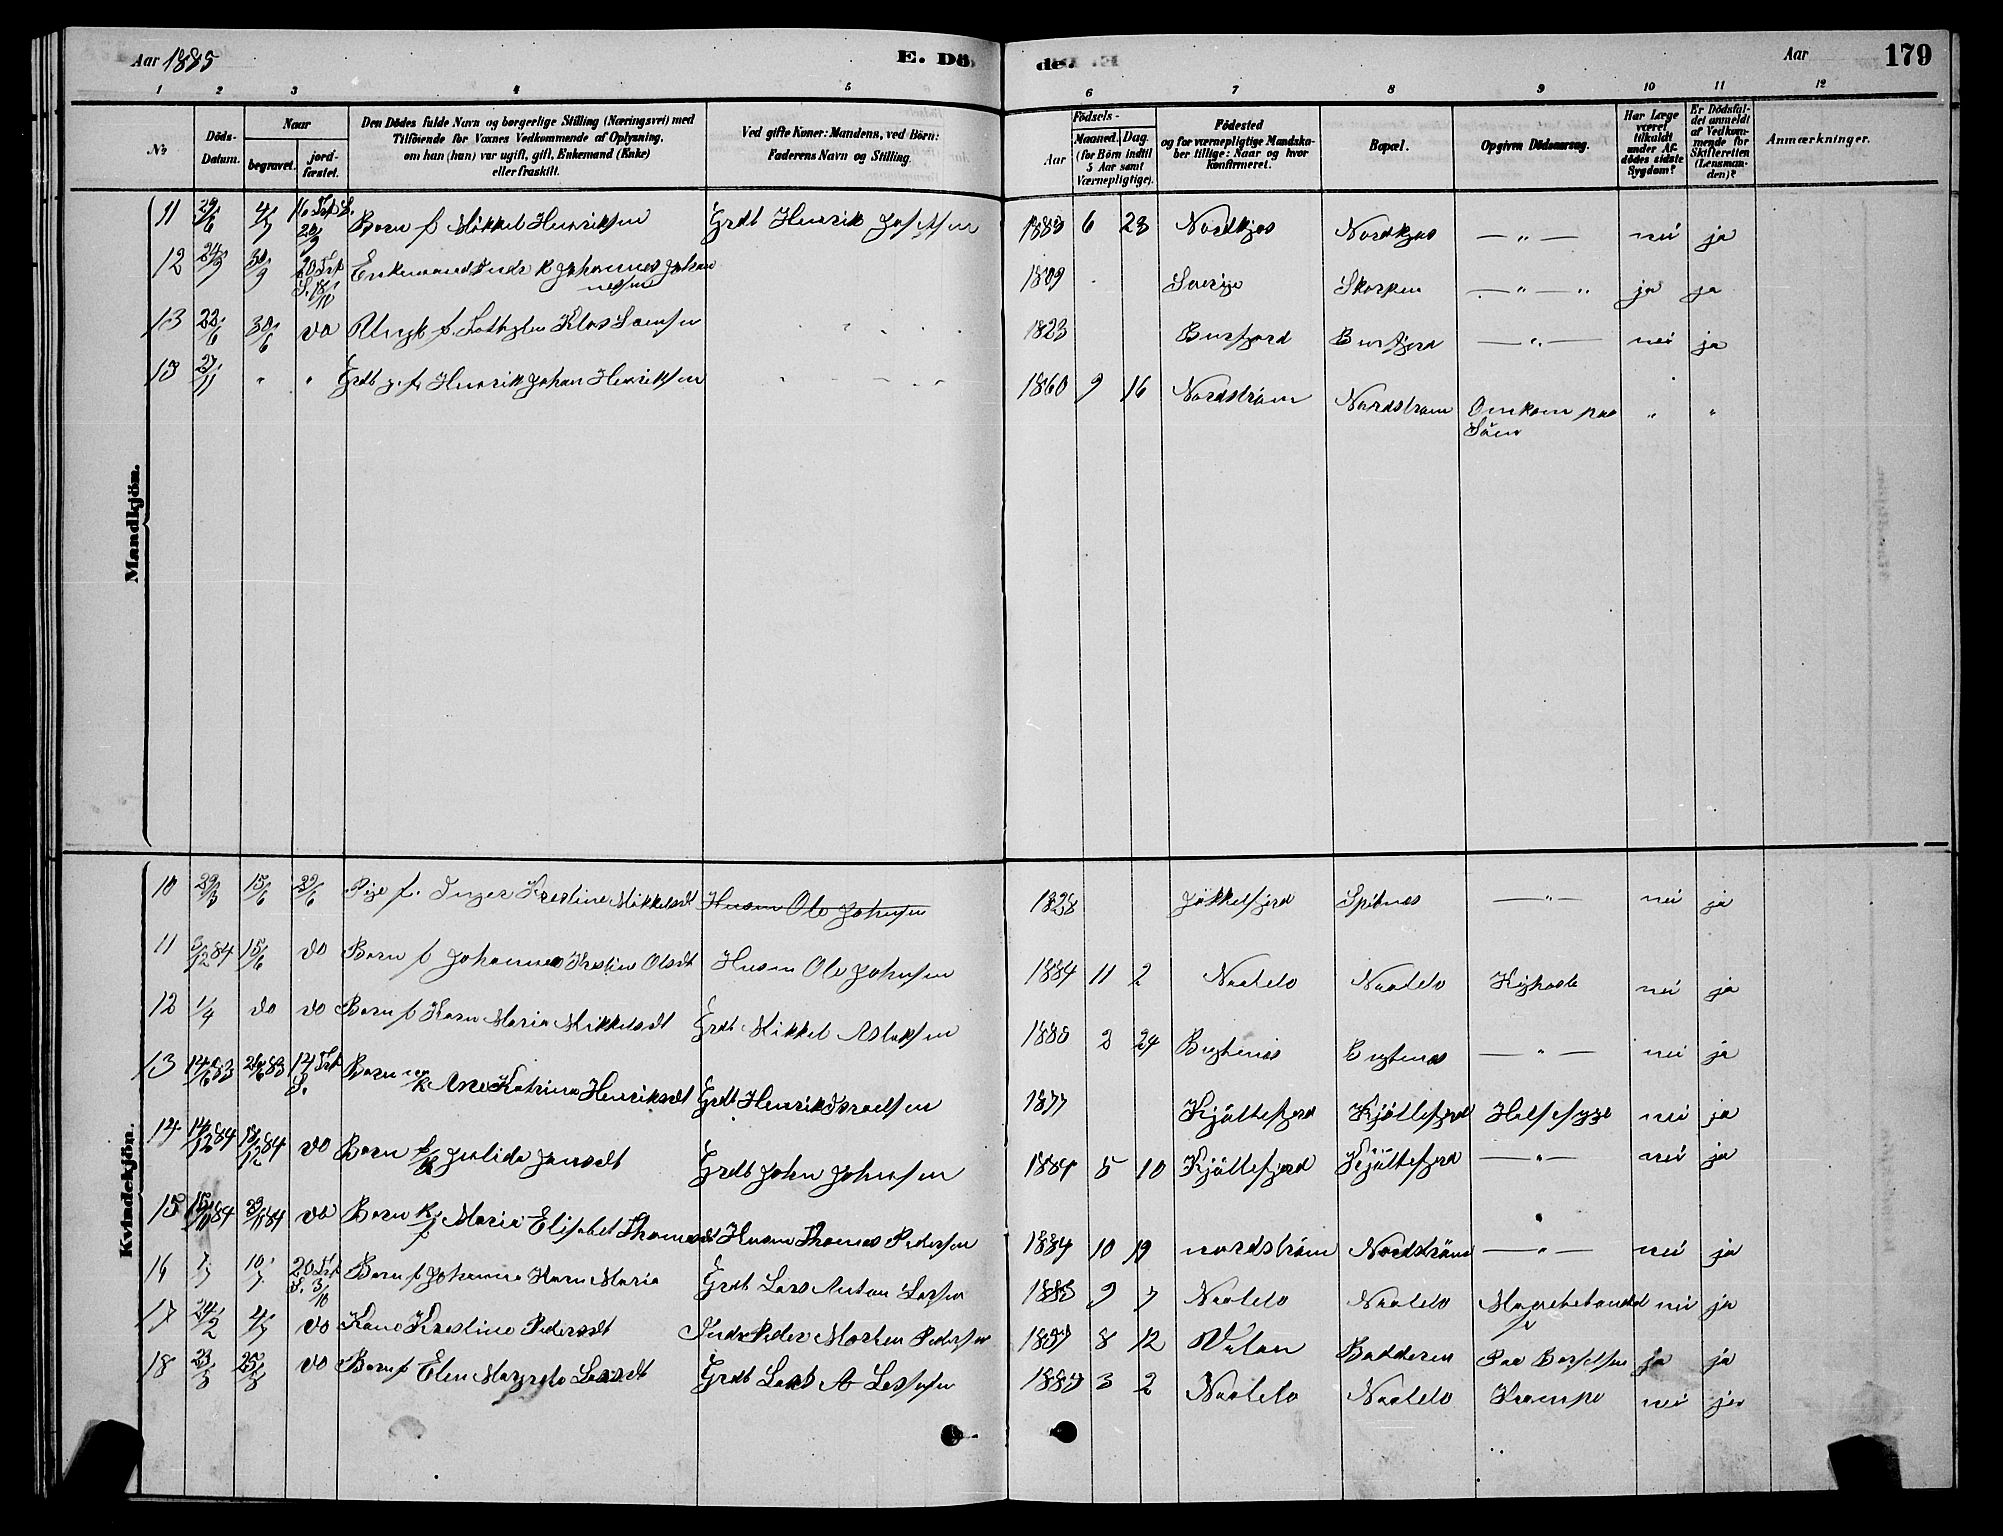 Aar 1885 E. Dö- de. Aar 179
1 2 3 4 5 6 7 8 9 10 11 12
No Döds-Datum. Naar begravet. jord-fæstet.
Den Dödes fulde Navn og borgerlige Stilling (Næringsvei) med
Tilföiende for Voxnes Vedkommende af Oplysning,
om han (hun) var ugift, gift, Enkemand (Enke)
eller fraskilt.
Ved gifte Koner: Mandens, ved Börn:
Faderens Navn og Stilling.
Födsels-
Aar Maaned. Dag.
(for Börn indtil
5 Aar samt
Værnepligtige).
Födested
og for værnepligtige Mandska-
ber tillige: Naar og hvor
konfirmeret.
Bopæl.
Opgiven Dödsaarsag.
Har Læge
været
tilkaldt
under Af-
dödes sidste
Sygdom?
Er Dödsfal-
det anmeldt
af Vedkom-
mende for
Skifteretten
(Lensman-
den)?
Anmærkninger.
Mandkjön.
11 29/6 4/7 Barn f Mikkel Henriksen Grdb Henrik Josefsen 1883 6 23 Nordkjos Nordkjos — " — nei ja
12 24/9 30/9 Enkemand Inds k Johannes Johannessen 1809 Sverige Skorpen — " — " ja ja
13 22/6 30/6 do Ungk f Klas Larsen 1823 Burfjord Burfjord — " — nei ja
13 27/11 " " Grdb g. f. Henrik Johan Henriksen 1860 9 16 Nordström Nordström Omkom paa Söen " "
Kvindekjön.
10 29/3 15/6 Pige f. Inger Kristine Mikkelsdt Husm Ole Johnsen 1828 Jökkelfjord Spitnes — " — nei ja
11 5/12 84 15/6 do Barn f Johanne Kristine Olsdt Husm Ole Johnsen 1884 11 2 Kighoste nei ja
12 1/4 do do Barn f Karn Maria Mikkelsdt Grdb Mikkel Aslaksen 1885 2 24 Bugtenes Bugtenes — " — nei ja
13 14/6 83 26/6 83 Barn Ane Katrine Henriksdt Grdb Henrik Israelsen 1877 Kjöllefjord Kjöllefjord Halsesyge nei ja
14 14/12 84 18/12 84 do Barn Julida Jansdt Grdb John Johnsen 1884 5 10 Kjöllefjord Kjöllefjord — " — nei ja
15 15/11 84 23/11 84 do Barn k/f Maria Elisabet Thomasdt Husm Thomas Pedersen 1884 10 19 nordström Nordström — " — nei ja
16 1/7 10/7 Barn f Johanna Karn Maria Grdb Lars Anton Larsen 1883 9 7 nei ja
17 24/2 4/7 do Kone Kristine Pedersdt Inds Peder Morten Pedersen 8 12 Badderen Paa Barselsen ja ja
18 23/3 25/3 do Barn f Elen Margrete Larsdt Grdb Lars A Larsen 3 2 Krampe nei ja